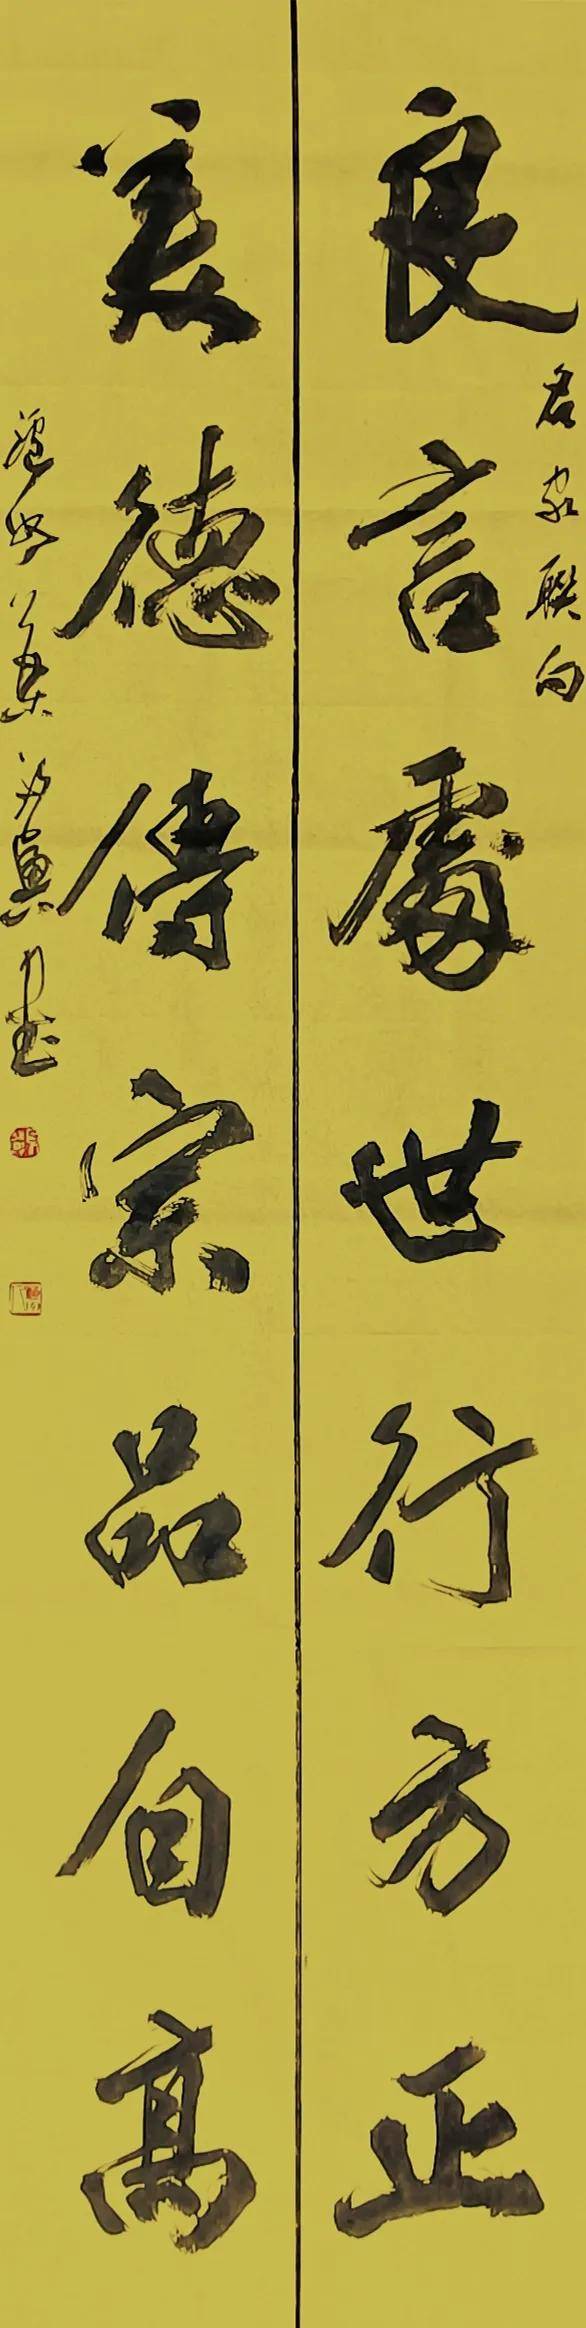 良言處世行方正
名家聯句
美德傳宗品自高